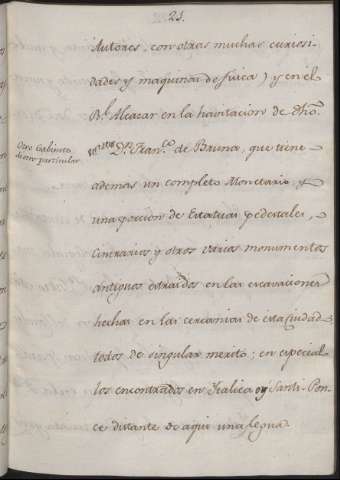 21.
Autores, con otras muchas curiosi-
dades y maquinas de fisica) y en el
Rl. Alcazar en la havitacion de dho.
Otro Gabinete
de otro particular.
Dn. Franco. de Bruna, que tiene
ademas un completo Monetario, y
una porcion de Estatuas, pedestales,
Cinerarios y otros varios monumentos
antiguos extraidos en las excavaciones
hechas en las cercanias de esta Ciudad
todos de singular merito; en especial
los encontrados en Italica oy Santi-Pon-
ce distante de aqui una legua.